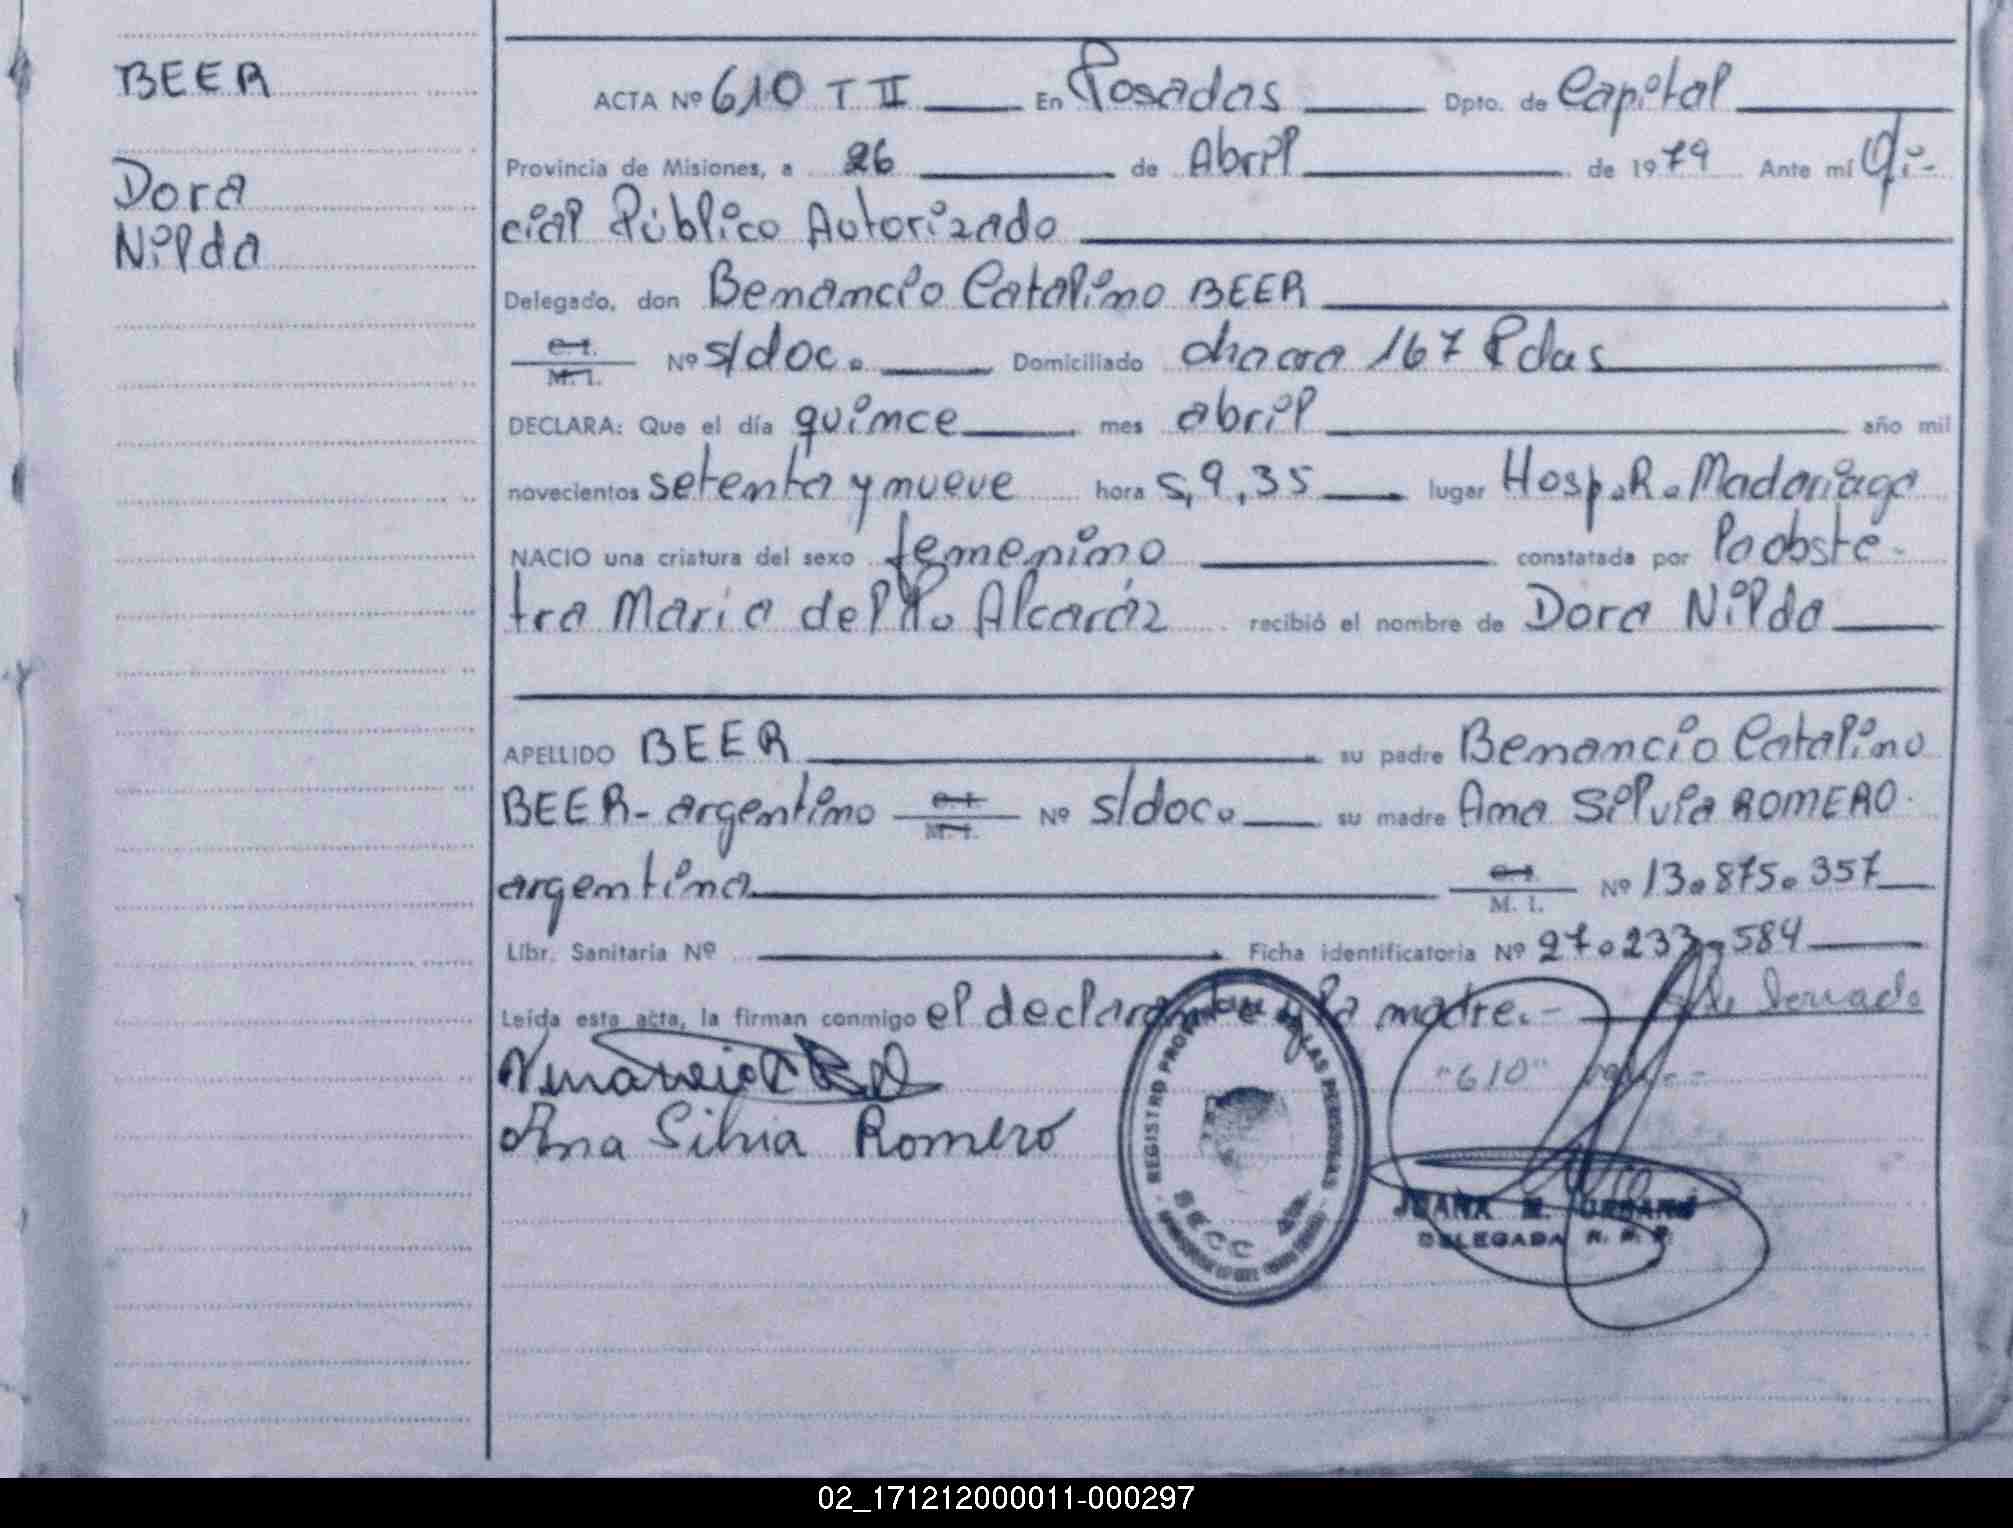 BEER
Dora
Nilda
ACTA Nº 610 T II En Posadas Dpto. de Capital
Provincia de Misiones, a 26 de Abril de 1979 Ante mí Ofi-
cial Público Autorizado
Delegado, don Benancio Catalino BEER
C.I. M.I. Nº s/doc. Domiciliado chacra 167 Pdas
DECLARA: Que el día quince mes abril año mil
novecientos setenta y nueve hora s, 9,35 lugar Hosp. R. Madariaga
NACIO una criatura del sexo femenino constatada por la obste-
tra Maria del Alcaráz recibió el nombre de Dora Nilda
APELLIDO BEER su padre Benancio Catalino
BEER- argentino C.I. M.I. Nº s/doc. su madre Ana Silvia ROMERO.
argentina C.I. M. I. Nº 13.875.357
Libr. Sanitaria Nº Ficha identificatoria Nº 27.233.584
Leída esta acta, la firman conmigo el declarante y la madre.-
"610"
Ana Silvia Romero
REGISTRO PROVINCIAL DE LAS PERSONAS
SECC
JUANA
DELEGADA R. P. P.
02_171212000011-000297